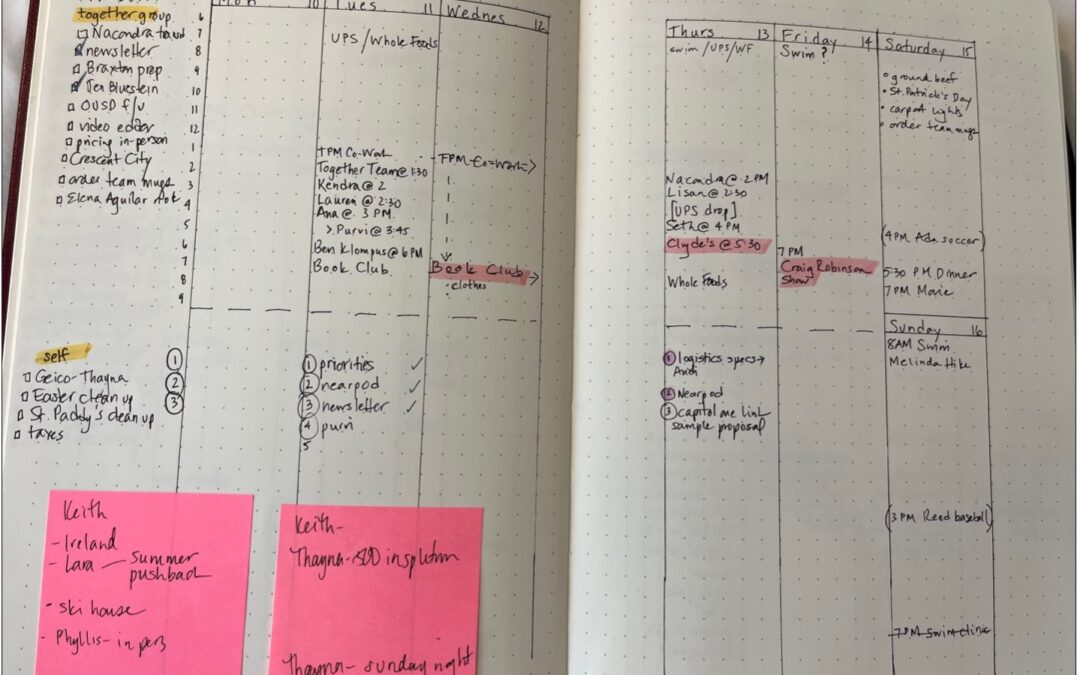 together group
Nacondra
newsletter
Braxton prep
Jen Bluestein
OUSD f/u
video edder
pricing in-person
Crescent City
order team mugs
Elena Aguilar
6
7
8
9
10
11
12
1
2
3
4
5
6
7
8
9
self
Geico-Thayna
Easter clean up
St. Paddy's clean up
taxes
1
2
3
Mon 10
Tues 11
UPS / Whole Foods
TPM Co-Work
Together Team @ 1:30
Kendra @ 2
Lauren @ 2:30
Ana @ 3 PM
> Purvi @ 3:45
Ben Klompus @ 6 PM
Book Club
1 priorities ✓
2 nearpod ✓
3 newsletter ✓
4 purvi
5
Wednes 12
TPM Co-Work
Book Club
clothes
Thurs 13
swim / UPS / WF
Nacondra @ 2 PM
Lisan @ 2:30
[UPS drop]
Seth @ 4 PM
Clyde's @ 5:30
Whole Foods
1 logistics specs →
Andi
2 Nearpod
3 capitol one link
sample proposal
Friday 14
Swim?
7 PM
Craig Robinson
Show
Saturday 15
ground beef
St. Patrick's Day
carport lights
order team mugs
(4 PM Ada soccer)
5:30 PM Dinner
7 PM Movie
Sunday 16
8AM Swim
Melinda Hike
(3 PM Reed baseball)
7 PM Swim clinic
Keith
- Ireland
- Lara — summer
pushback
- ski house
- Phyllis - in pers
Keith-
Thayna-
Thayna- sunday night